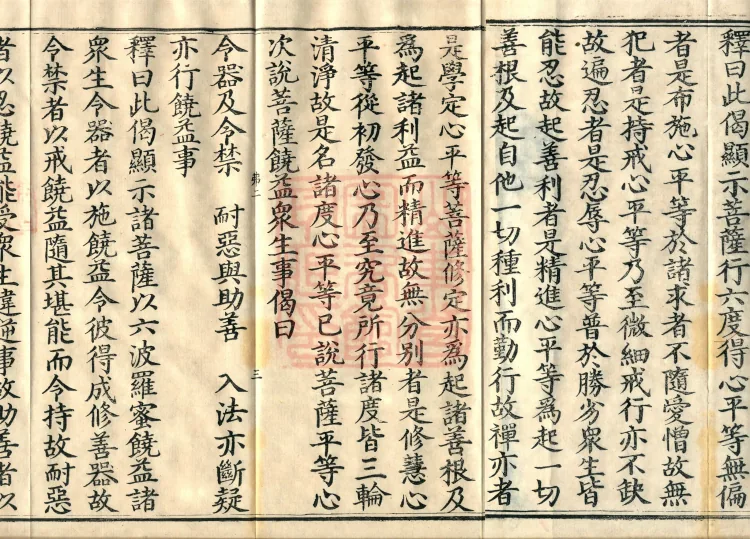 釋曰此偈顯示菩薩行六度得心平等無偏
者是布施心平等於諸求者不隨愛憎故無
犯者是持戒心平等乃至微細戒行亦不缺
故遍忍者是忍辱心平等普於勝劣衆生皆
能忍故起善利者是精進心平等爲起一切
善根及起自他一切種利而勤行故禪亦者
是學定心平等菩薩修定亦爲起諸善根及
爲起諸利益而精進故無分别者是修慧心
平等從初發心乃至究竟所行諸度皆三輪
清淨故是名諸度心平等已說菩薩平等心
次說菩薩饒益衆生事偈曰
弟二 三
令器及令禁 耐惡與助善 入法亦斷疑
亦行饒益事
釋曰此偈顯示諸菩薩以六波羅蜜饒益諸
衆生令器者以施饒益令彼得成修善器故
令禁者以戒饒益隨其堪能而令持故耐惡
者以忍饒益能受衆生違逆事故助善者以